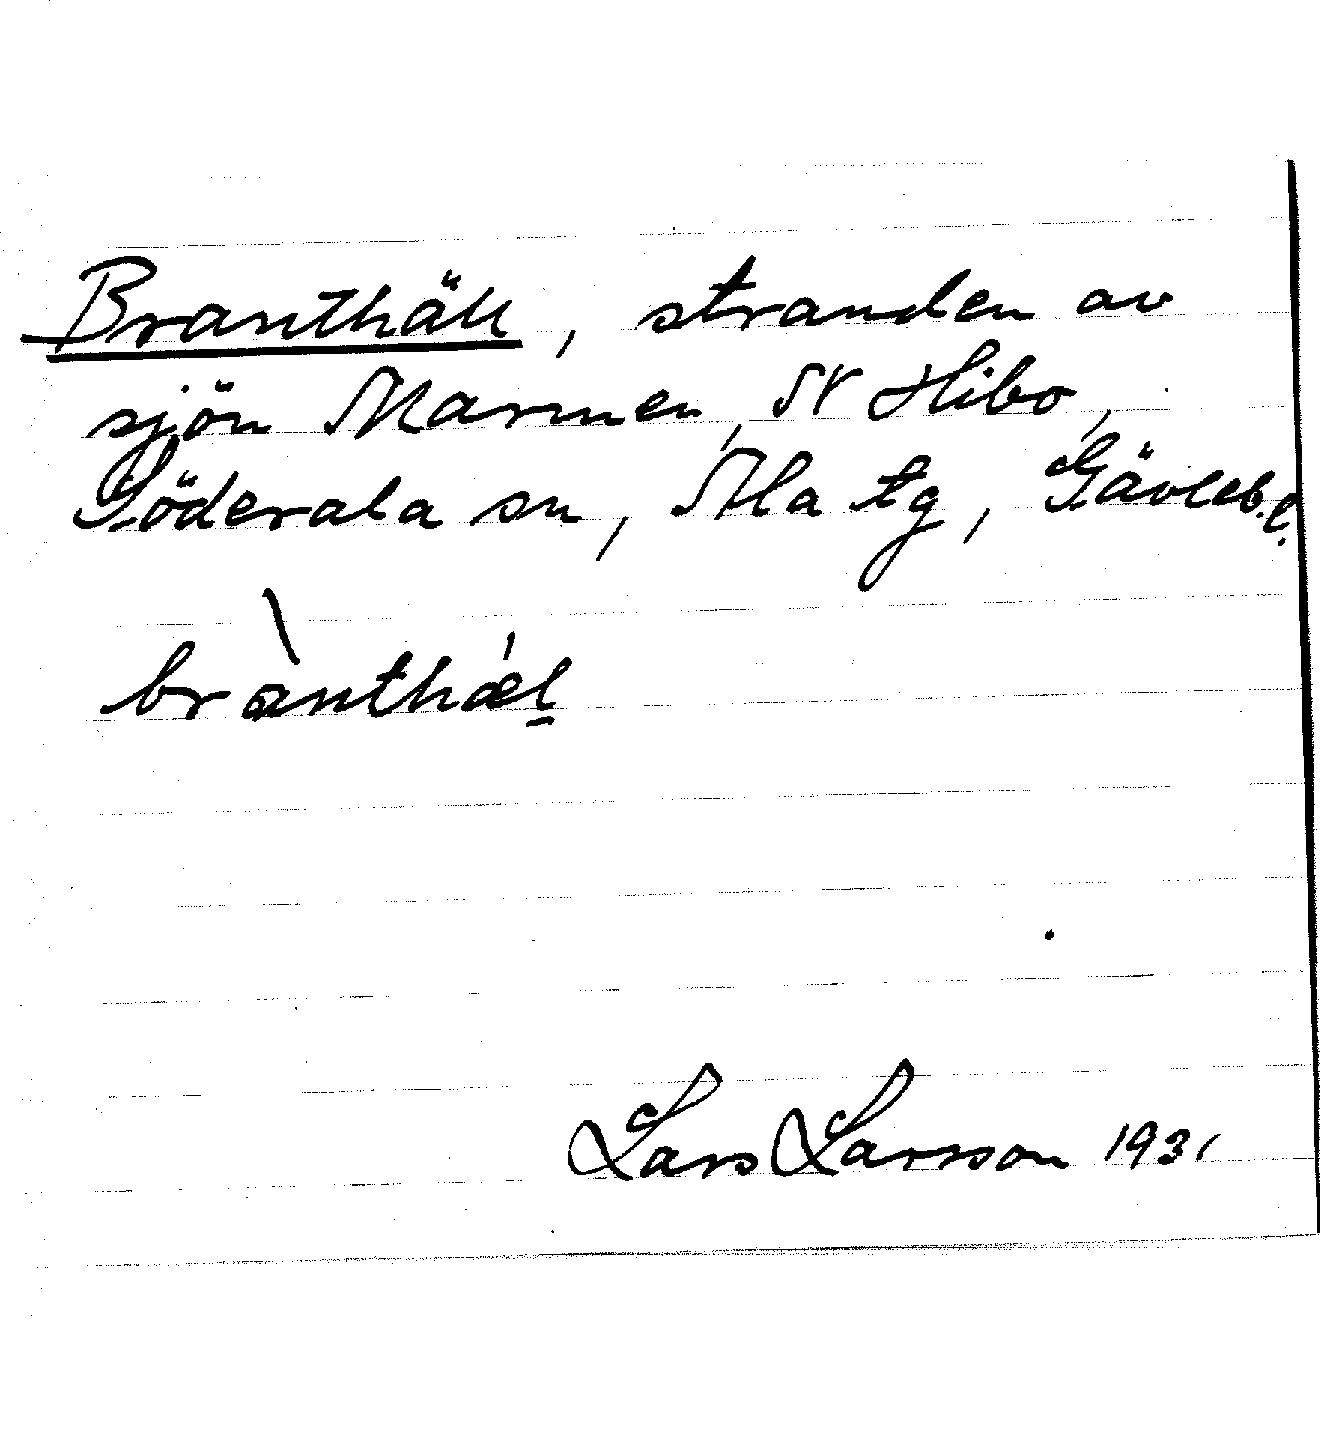 Branthäll, stranden av
sjön Marmen, N Hibo,
Söderala sn, Ala tg, Gävleb. l.
brànthæ̀l
Lars Larsson 1931